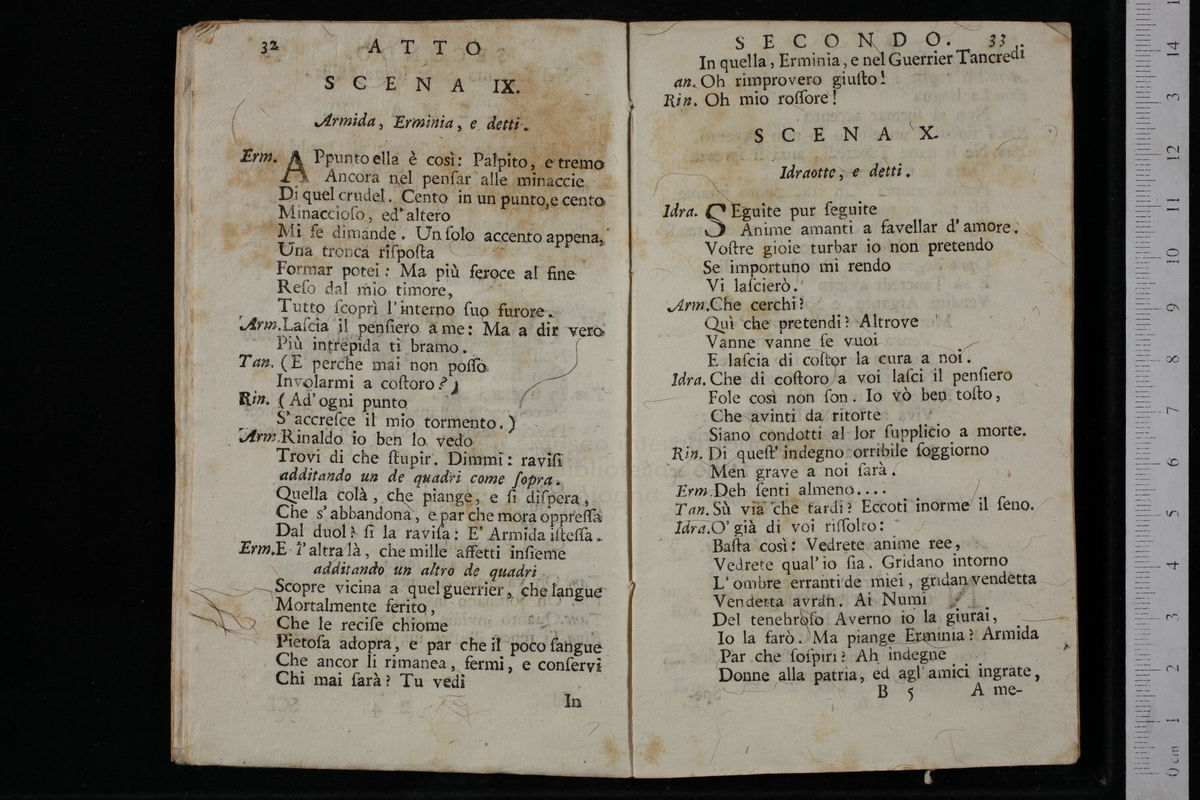 32 ATTO
SCENA IX.
Armida, Erminia, e detti.
Erm. APpunto ella è così: Palpito, e tremo
Ancora nel penſar alle minaccie
Di quel crudel. Cento in un punto, e cento
Minaccioſo, ed'altero
Mi fe dimande. Un ſolo accento appena,
Una tronca riſpoſta
Formar potei: Ma più feroce al fine
Reſo dal mio timore,
Tutto ſcoprì l'interno ſuo furore.
Arm. Laſcia il penſiero a me: Ma a dir vero
Più intrepida ti bramo.
Tan. (E perche mai non poſſo
Involarmi a coſtoro?)
Rin. (Ad'ogni punto
S'accreſce il mio tormento.)
Arm. Rinaldo io ben lo vedo
Trovi di che ſtupir. Dimmi: raviſi
additando un de quadri come ſopra.
Quella colà, che piange, e ſi diſpera,
Che s'abbandona, e par che mora oppreſſa
Dal duol? ſi la raviſa: E' Armida iſteſſa.
Erm. E l'altra là, che mille affetti inſieme
additando un altro de quadri
Scopre vicina a quel guerrier, che langue
Mortalmente ferito,
Che le reciſe chiome
Pietoſa adopra, e par che il poco ſangue
Che ancor li rimanea, fermi, e conſervi
Chi mai ſarà? Tu vedi
In
SECONDO. 33
In quella, Erminia, e nel Guerrier Tancredi
an. Oh rimprovero giuſto!
Rin. Oh mio roſſore!
SCENA X.
Idraotte, e detti.
Idra. SEguite pur ſeguite
Anime amanti a favellar d'amore.
Voſtre gioie turbar io non pretendo
Se importuno mi rendo
Vi laſcierò.
Arm. Che cerchi?
Quì che pretendi? Altrove
Vanne vanne ſe vuoi
E laſcia di coſtor la cura a noi.
Idra. Che di coſtoro a voi laſci il penſiero
Fole così non ſon. Io vò ben toſto,
Che avinti da ritorte
Siano condotti al lor ſupplicio a morte.
Rin. Di queſt'indegno orribile ſoggiorno
Men grave a noi ſarà.
Erm. Deh ſenti almeno....
Tan. Sù via che tardi? Eccoti inorme il ſeno.
Idra. O' già di voi riſſolto:
Baſta così: Vedrete anime ree,
Vedrete qual'io ſia. Gridano intorno
L'ombre erranti de miei, gridan vendetta
Vendetta avran. Ai Numi
Del tenebroſo Averno io la giurai,
Io la farò. Ma piange Erminia? Armida
Par che ſoſpiri? Ah indegne
Donne alla patria, ed agl'amici ingrate,
B 5 A me-